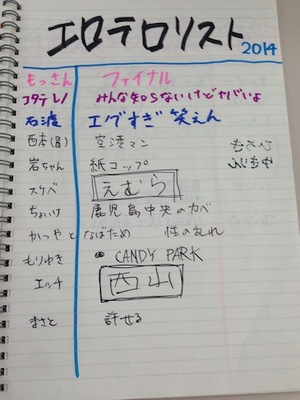 エロテロリスト 2014
もっさん ファイナル
コタテレノ みんな知らないけどヤバいよ
石渡 エグすぎ笑えん
西本(昌) 空港マン
岩ちゃん 紙コップ
スケベ えむら
ちょいけ 鹿児島中央のカベ
かつやとなばため 性の乱れ
もりゆき CANDY PARK
エッチ 西山
まさと 許せる